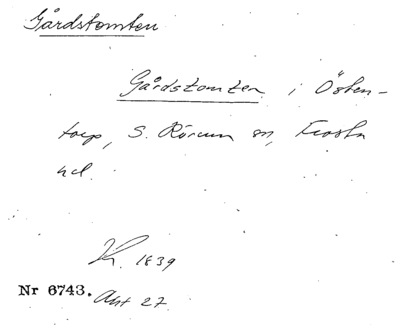 Gårdstomten
Gårdstomten i Östen-
torp, S. Rörum sn, Frosta
hd.
K. 1839
Nr 6743. Akt 27